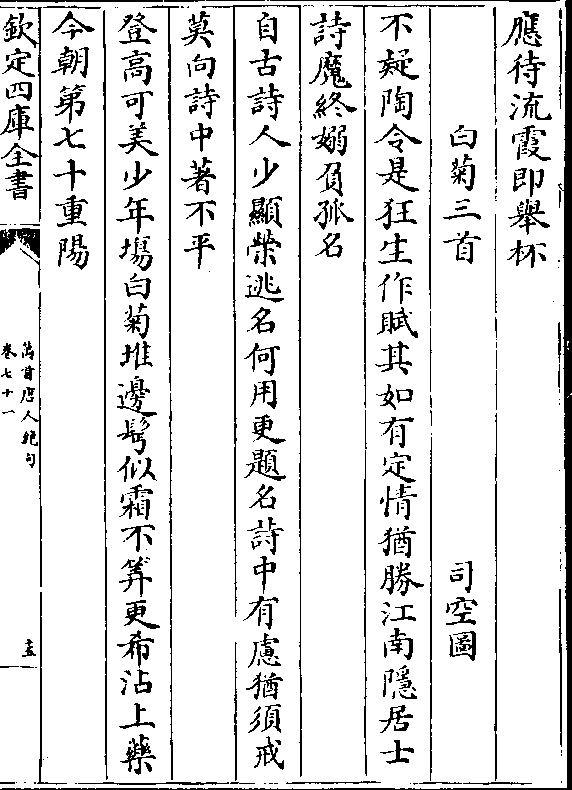 應待流霞即舉杯
白菊三首 司空圖
不疑陶令是狂生作賦其如有定情猶勝江南隱居士
詩魔終嫋負孤名
自古詩人少顯榮逃名何用更題名詩中有慮猶須戒
莫向詩中著不平
登高可羙少年塲白菊堆邊鬂似霜不筭更希沾上藥
今朝第七十重陽
欽定四庫全書
萬首唐人絶句
卷七十一